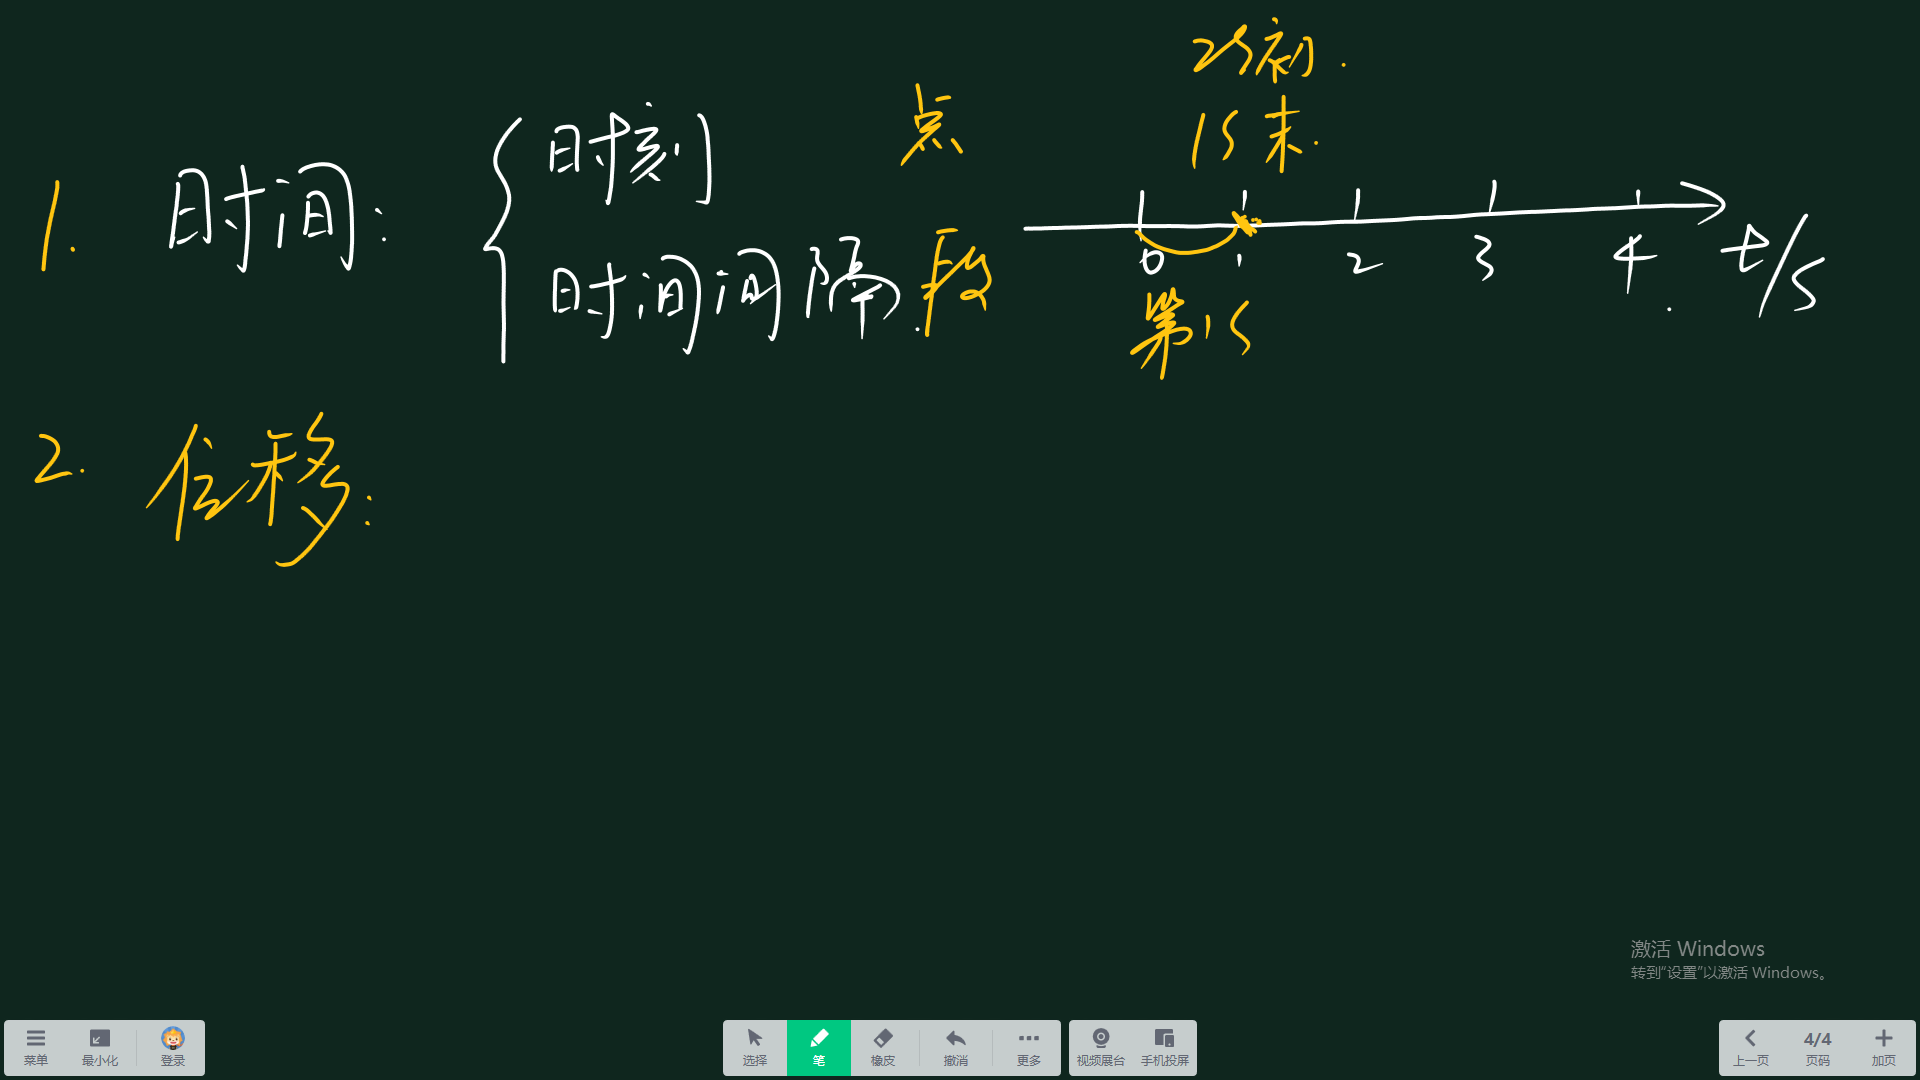 2s初.
1s末.
1. 时间:
时刻 点
时间间隔. 段
0 1 2 3 4 t/s
第1s
2. 位移:
激活 Windows
转到“设置”以激活 Windows。
菜单 最小化 登录 选择 笔 橡皮 撤消 更多 视频展台 手机投屏 上一页 4/4 页码 加页